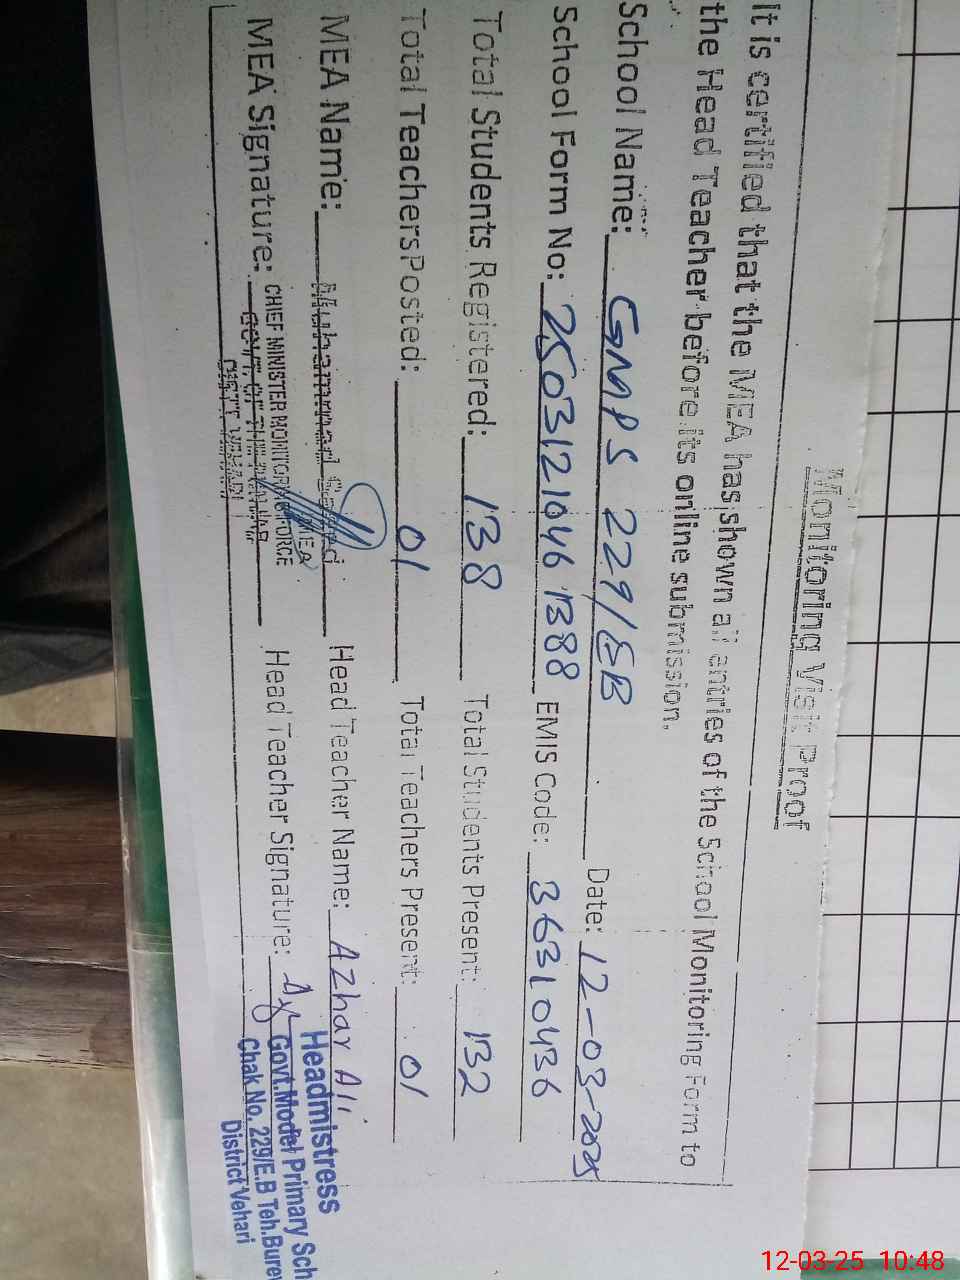 Monitoring Visit Proof
It is certified that the MEA has shown all entries of the School Monitoring Form to
the Head Teacher before its online submission.
School Name: GMPS 229/EB Date: 12-03-2025
School Form No: 2503121046 1388 EMIS Code: 36310436
Total Students Registered: 138 Total Students Present: 132
Total Teachers Posted: 01 Total Teachers Present: 01
MEA Name: Muhammad Head Teacher Name: Azhar Ali
MEA Signature: Head Teacher Signature:
MEA
CHIEF MINISTER MONITORING FORCE
GOVT. OF THE PUNJAB
DISTT. VEHARI
Headmistress
Govt.Model Primary Sch
Chak No. 229/E.B Teh.Burew
District Vehari
12-03-25 10:48